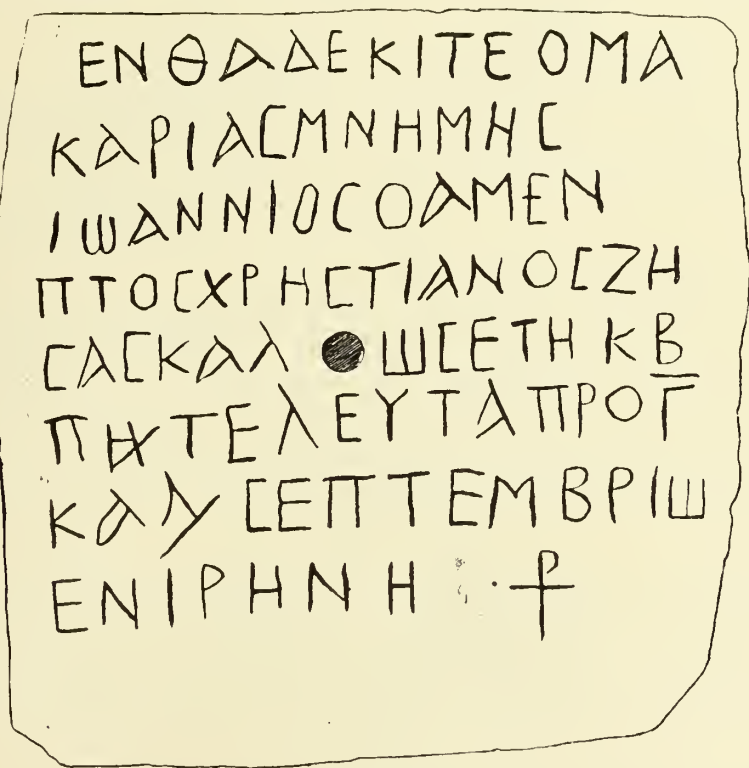 ΕΝΘΑΔΕΚΙΤΕΟΜΑ
ΚΑΡΙΑϹΜΝΗΜΗϹ
ΙΩΑΝΝΙΟϹΟΑΜΕΝ
ΠΤΟϹΧΡΗϹΤΙΑΝΟϹΖΗ
ϹΑϹΚΑΛ ΩϹΕΤΗΚΒ
ΤΕΛΕΥΤΑΠΡΟΓ
ϹΕΠΤΕΜΒΡΙΩ
ΕΝΙΡΗΝΗ